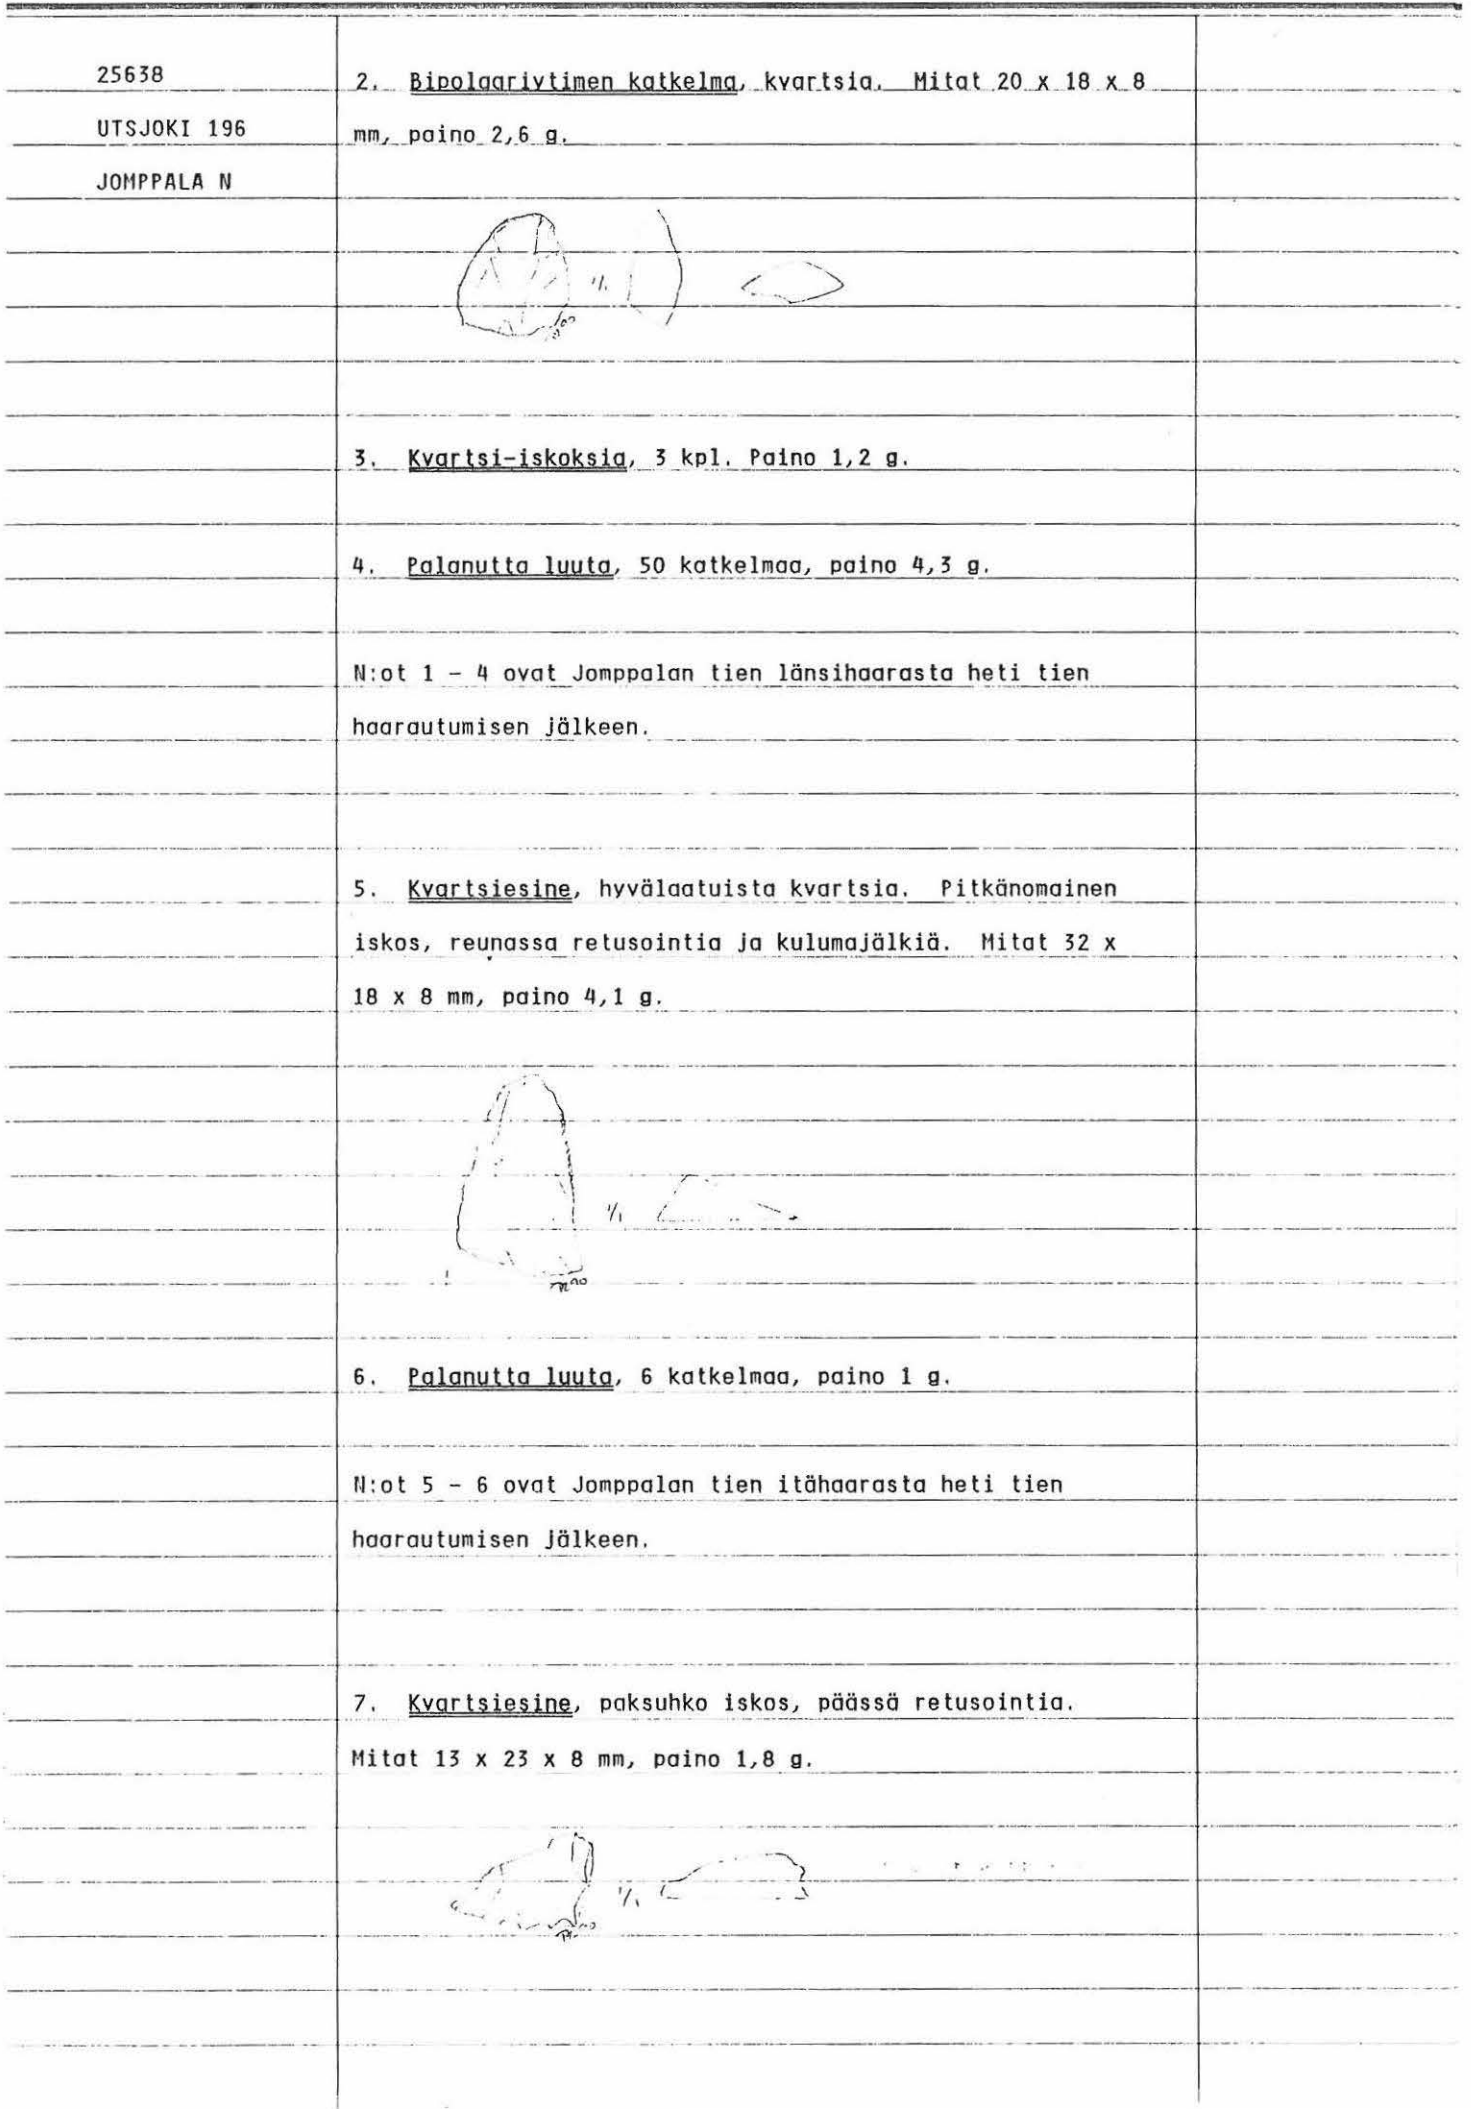 25638
UTSJOKI 196
JOMPPALA N
2. Bipolaariytimen katkelma, kvartsia. Mitat 20 x 18 x 8
mm, paino 2,6 g.
1/1
3. Kvartsi-iskoksia, 3 kpl. Paino 1,2 g.
4. Palanutta luuta, 50 katkelmaa, paino 4,3 g.
N:ot 1 - 4 ovat Jomppalan tien länsihaarasta heti tien
haarautumisen jälkeen.
5. Kvartsiesine, hyvälaatuista kvartsia. Pitkänomainen
iskos, reunassa retusointia ja kulumajälkiä. Mitat 32 x
18 x 8 mm, paino 4,1 g.
1/1
6. Palanutta luuta, 6 katkelmaa, paino 1 g.
N:ot 5 - 6 ovat Jomppalan tien itähaarasta heti tien
haarautumisen jälkeen.
7. Kvartsiesine, paksuhko iskos, päässä retusointia.
Mitat 13 x 23 x 8 mm, paino 1,8 g.
1/1